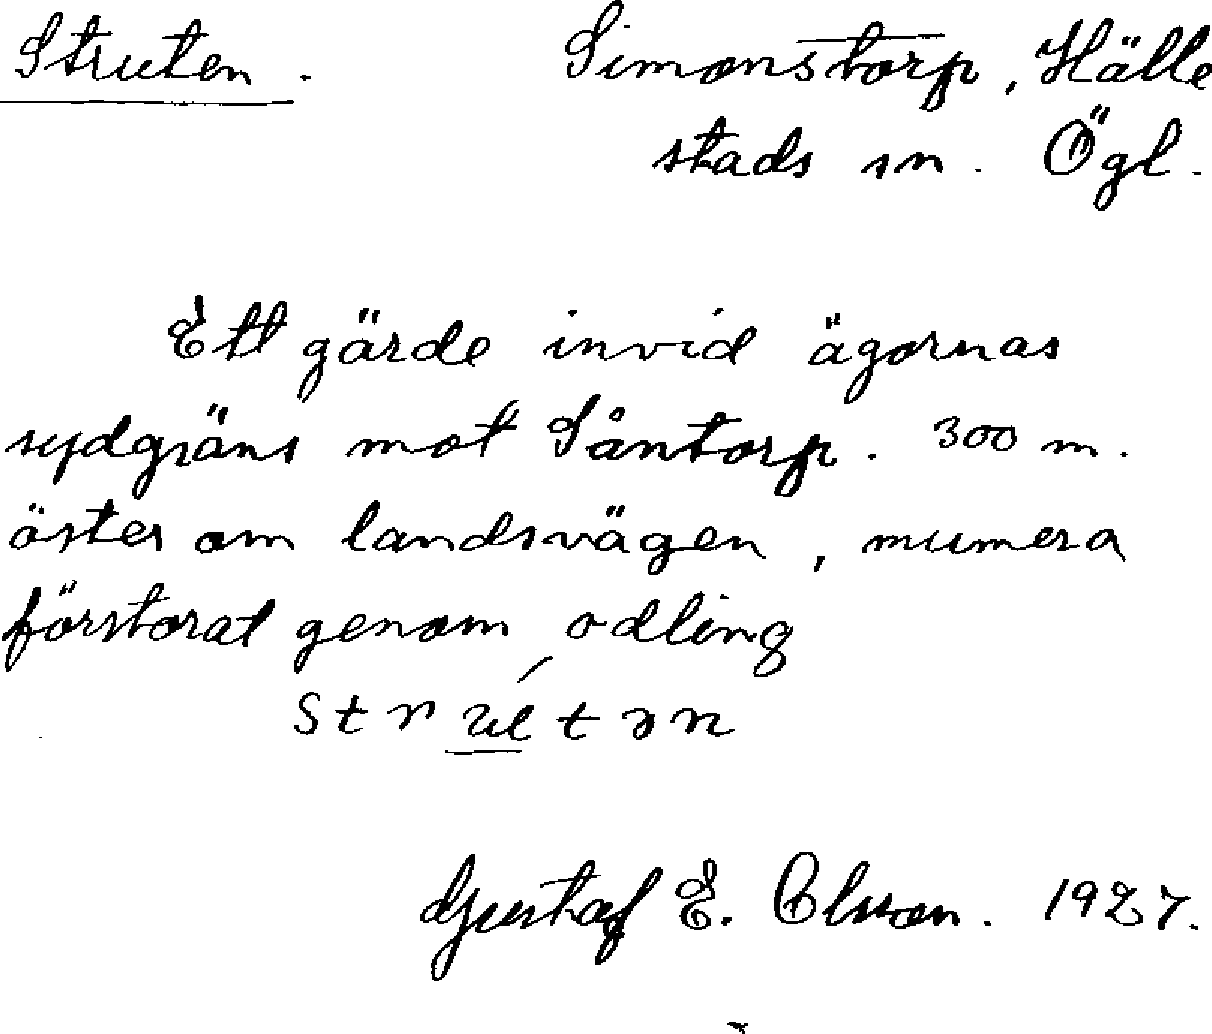 Struten. Simonstorp, Hälle
stads sn. Ögl.
Ett gärde invid ägornas
sydgräns mot Såntorp. 300 m.
öster om landsvägen, numera
förstorat genom odling
strútən
Gustaf E. Olsson. 1927.